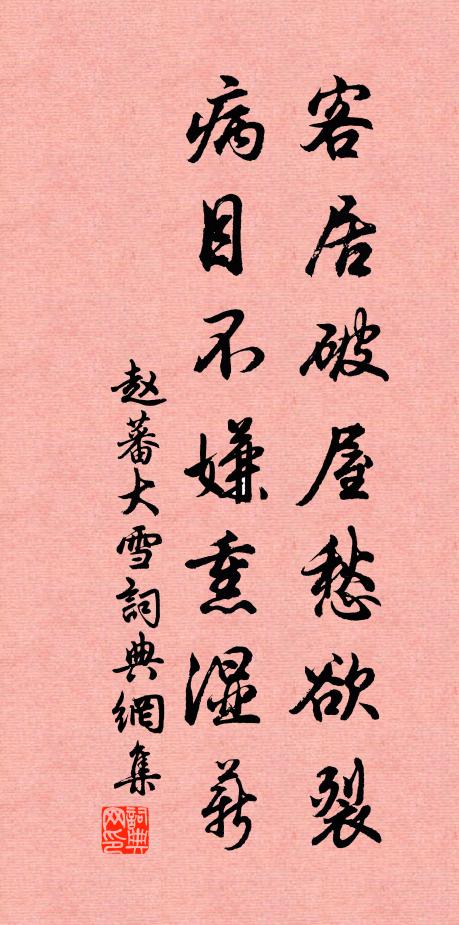 客居破屋愁欲裂
病目不嫌熏湿薪
赵蕃大雪詞典網集
詞典网印